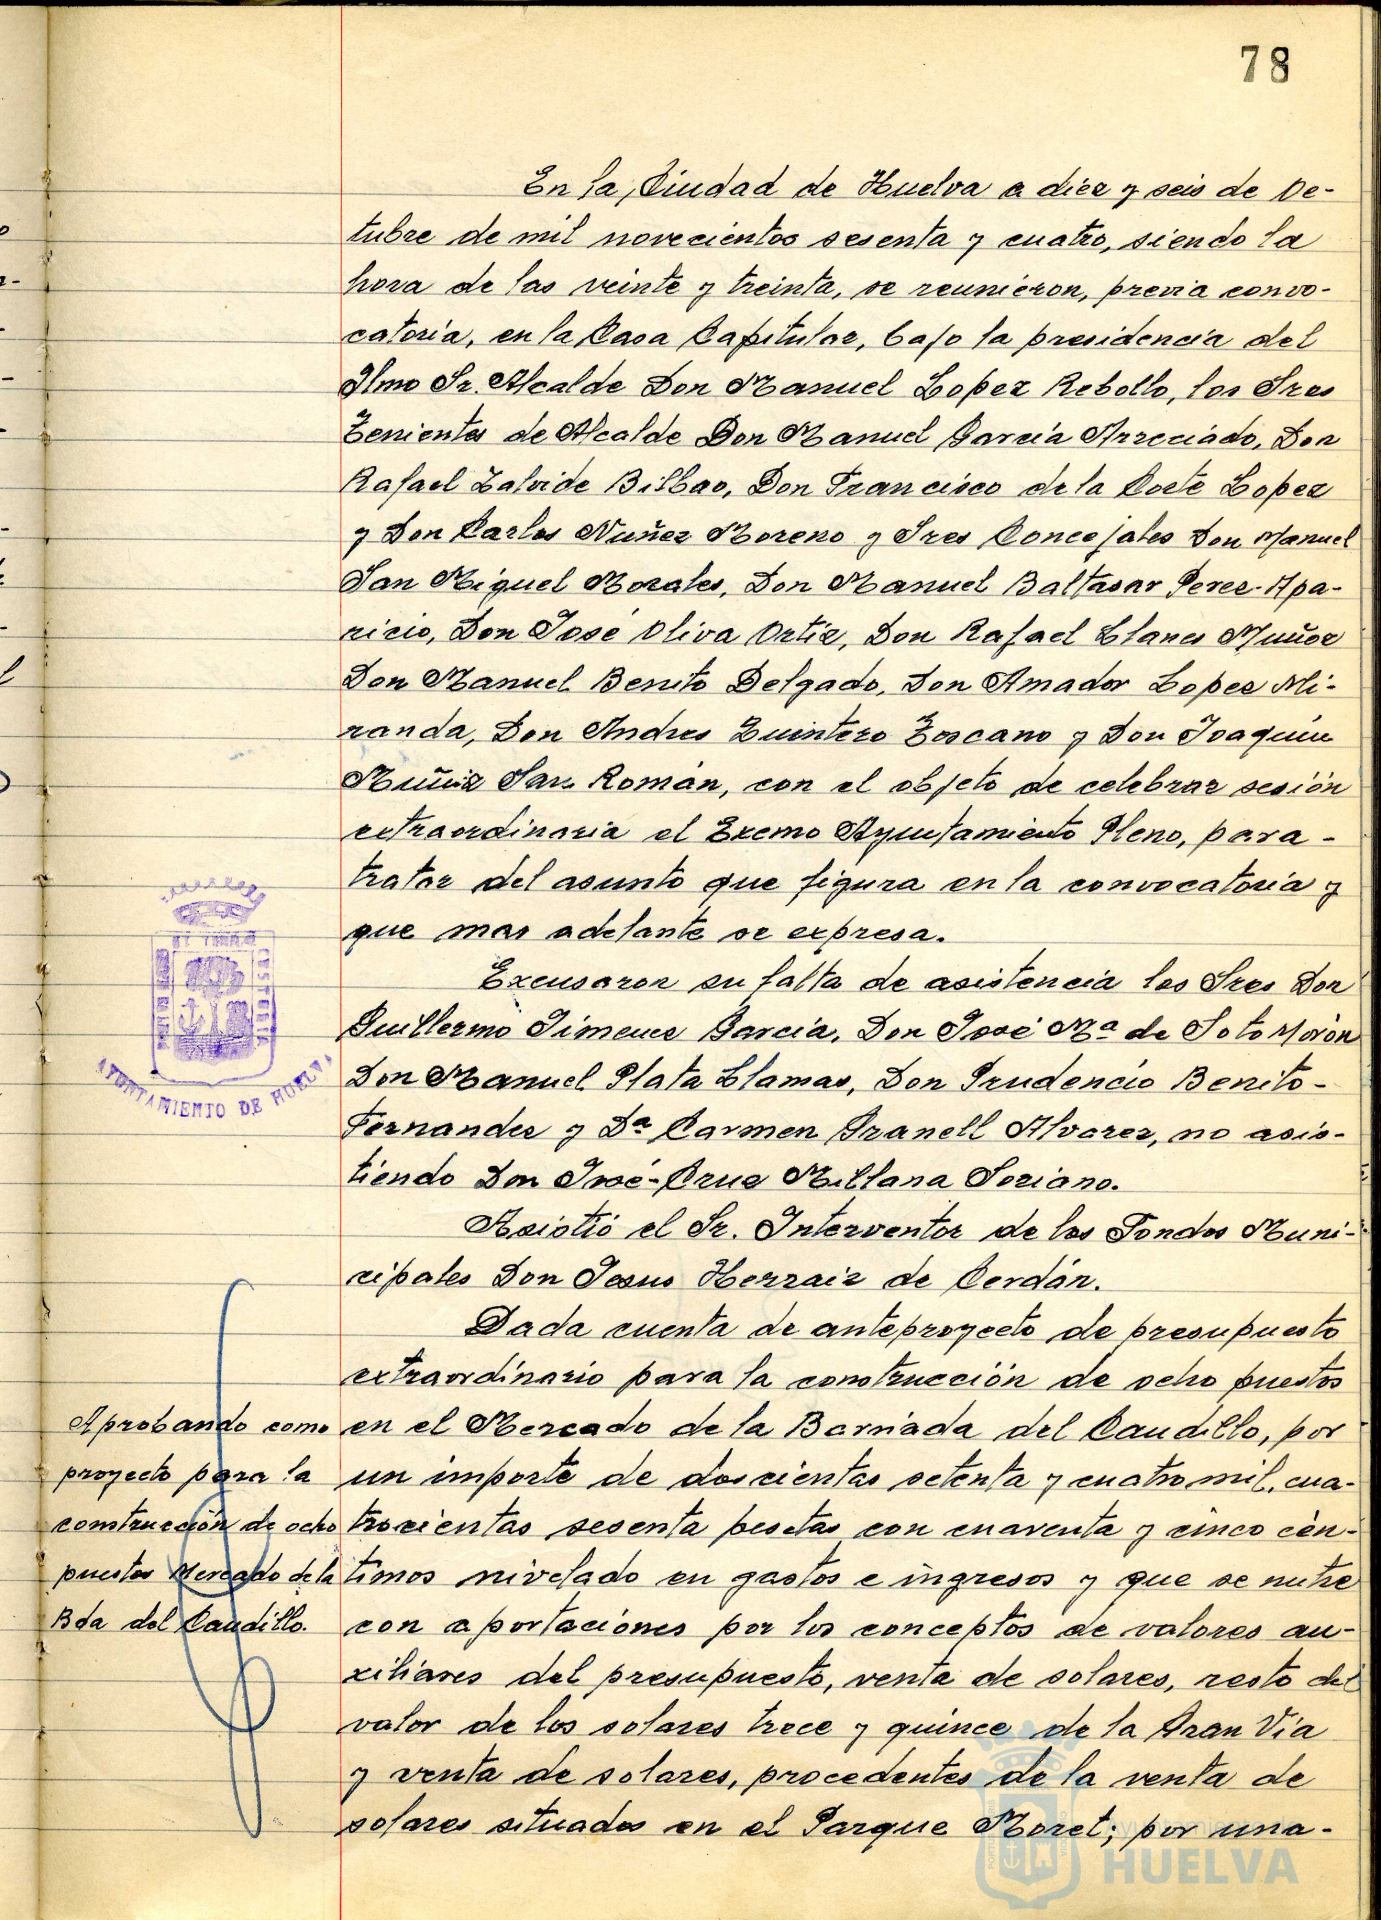 78
En la Ciudad de Huelva a diez y seis de Oc-
tubre de mil novecientos sesenta y cuatro, siendo la
hora de las veinte y treinta, se reunieron, previa convo-
catoria, en la Casa Capitular, bajo la presidencia del
Ilmo Sr. Alcalde Don Manuel Lopez Rebollo, los Sres
Tenientes de Alcalde Don Manuel Garcia Arreciado, Don
Rafael Zalvide Bilbao, Don Francisco de la Corte Lopez
y Don Carlos Nuñez Moreno y Sres Concejales Don Manuel
San Miguel Morales, Don Manuel Baltasar Perez-Apa-
ricio, Don José Oliva Ortiz, Don Rafael Llanes Muñoz
Don Manuel Benito Delgado, Don Amador Lopez Mi-
randa, Don Andres Quintero Toscano y Don Joaquin
Muñiz San Román, con el objeto de celebrar sesión
extraordinaria el Excmo Ayuntamiento Pleno, para-
tratar del asunto que figura en la convocatoria y
que mas adelante se expresa.
Excusaron su falta de asistencia los Sres Don
Guillermo Jimenez Garcia, Don José Mª de Soto Morón
Don Manuel Plata Llamas, Don Prudencio Benito-
Fernandez y Dª Carmen Granell Alvarez, no asis-
tiendo Don José-Cruz Millana Soriano.
Asistió el Sr. Interventor de los Fondos Muni-
cipales Don Jesus Herraiz de Cerdán.
Dada cuenta de anteproyecto de presupuesto
extraordinario para la construcción de ocho puestos
en el Mercado de la Barriada del Caudillo, por
un importe de doscientas setenta y cuatro mil, cua-
trocientas sesenta pesetas con cuarenta y cinco cén-
timos nivelado en gastos e ingresos y que se nutre
con aportaciones por los conceptos de valores au-
xiliares del presupuesto, venta de solares, resto del
valor de los solares trece y quince de la Gran Vía
y venta de solares, procedentes de la venta de
solares situados en el Parque Moret; por una-
Aprobando como
proyecto para la
construcción de ocho
puestos Mercado de la
Bda del Caudillo.
AYUNTAMIENTO DE HUELVA
HUELVA